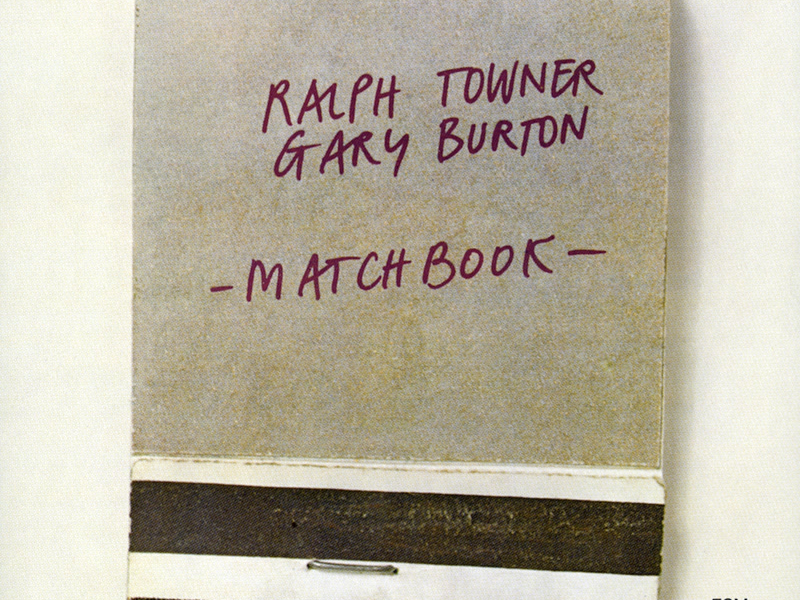 RALPH TOWNER
GARY BURTON
-MATCHBOOK-